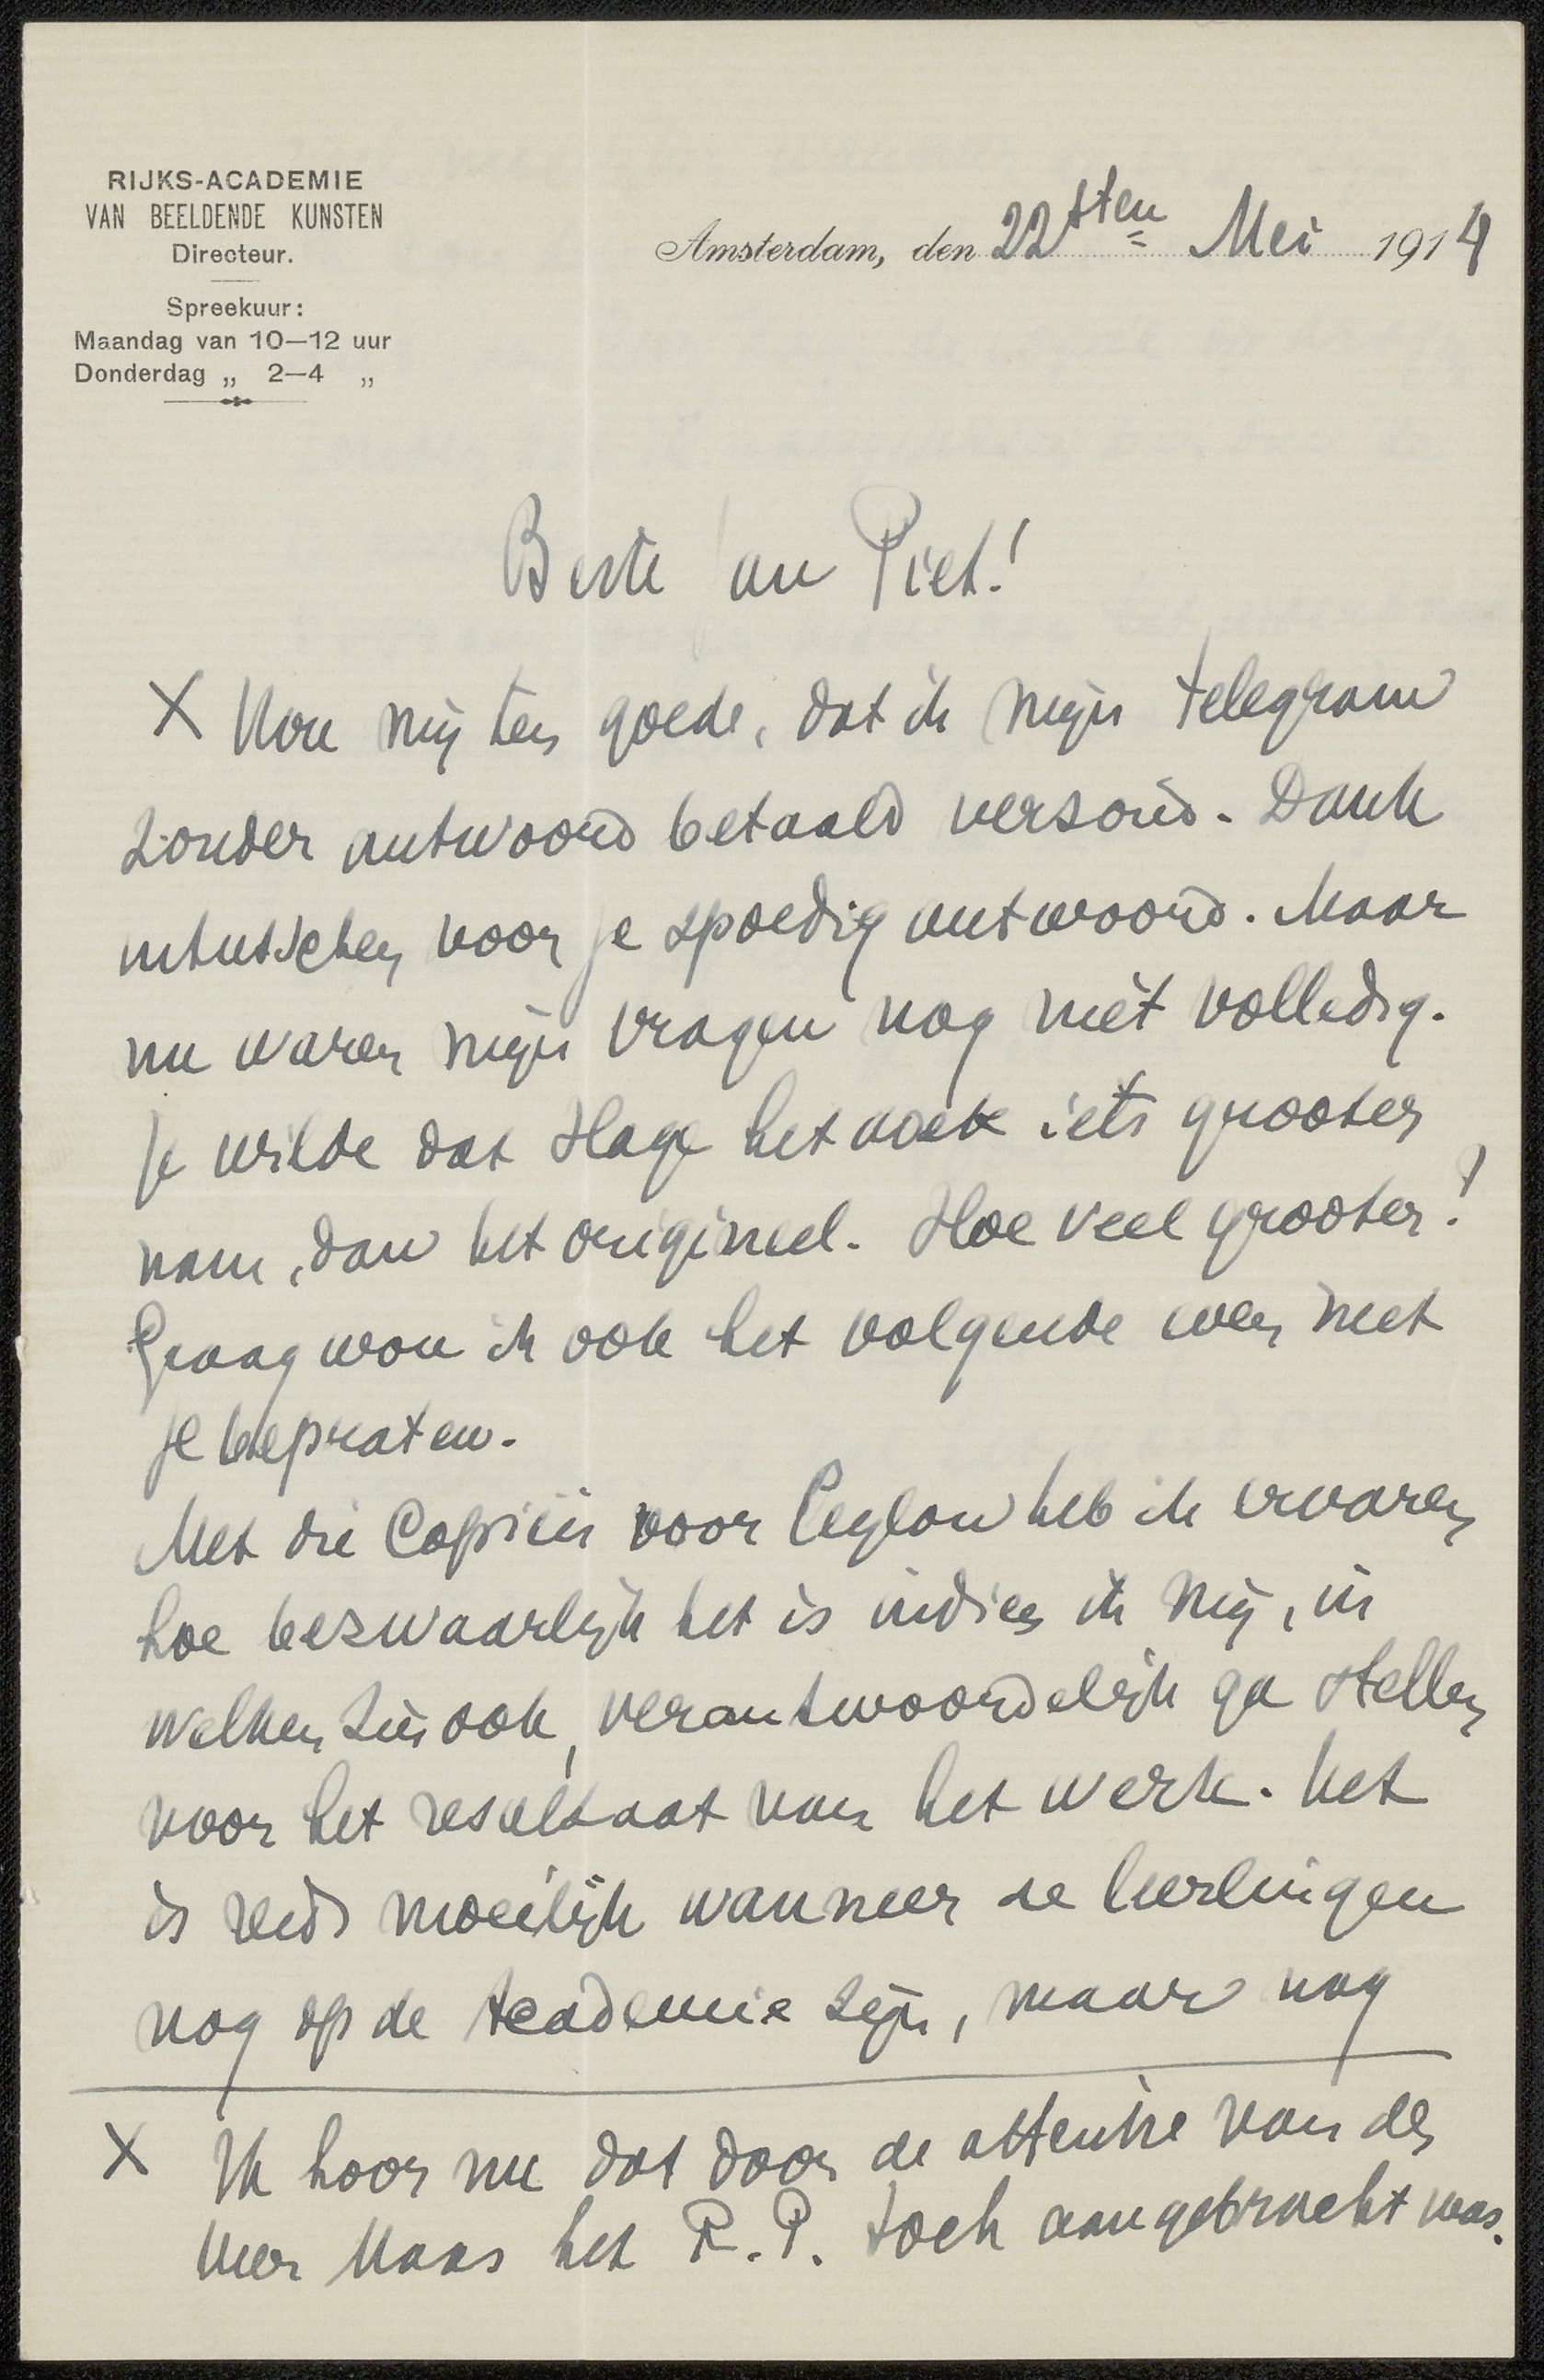 RIJKS-ACADEMIE
VAN BEELDENDE KUNSTEN
Directeur.
Spreekuur:
Maandag van 10—12 uur
Donderdag „ 2—4 „
Amsterdam, den 22sten Mei 1914
Beste Jan Piet!
X Hou mij ten goede, dat ik mijn telegram
zonder antwoord betaald verzond. Dank
intusschen voor je spoedig antwoord. Maar
nu waren mijn vragen nog niet volledig.
Je wilde dat Hage het iets grooter
nam, dan het origineel. Hoe veel grooter?
Graag wou ik ook het volgende even met
je bepraten.
Met die Copieën voor Ceylon heb ik ervaren
hoe bezwaarlijk het is indien ik mij, in
welken zin ook, verantwoordelijk ga stellen
voor het resultaat van het werk. Het
is reeds moeilijk wanneer de leerlingen
nog op de Academie zijn, maar nog
X Ik hoor nu dat door de attentie van den
Heer Maas het R.P. toch aangebracht was.